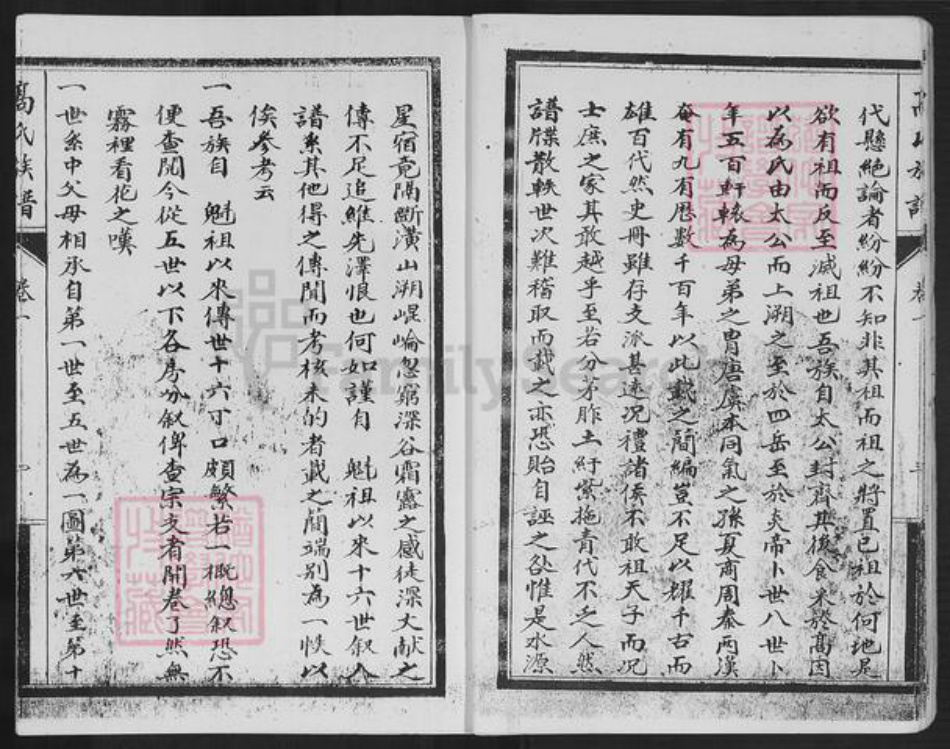 代懸絕論者紛紛不知非其祖而祖之將置已祖於何地是
欲有祖而反至滅祖也吾族自太公封齊其後食采於高因
以為氏由太公而上溯之至於四岳至於炎帝卜世八世卜
年五百軒轅為母弟之胄唐虞本同氣之孫夏商周秦兩漢
奄有九有歷數千百年以此載之簡編豈不足以耀千古而
雄百代然史冊雖存支派甚遠況禮諸侯不敢祖天子而況
士庶之家其敢越乎至若分茅胙土紆紫拖青代不乏人然
譜牒散軼世次難稽取而載之亦恐貽自誣之咎惟是水源
星宿竟隔斷潢山溯崐崘忽窮深谷霜露之感徒深文献之
傳不足追維先澤恨也何如謹自 魁祖以來十六世叙入
譜系其他得之傳聞而考核未的者載之簡端别為一帙以
俟參考云
一吾族自 魁祖以來傳世十六丁口頗繁若一概總叙恐不
便查閱今從五世以下各房分叙俾查宗支者開卷了然無
霧裡看花之嘆
一世系中父母相承自第一世至五世為一圖第六世至第十
高氏族譜 卷一
FamilySearch